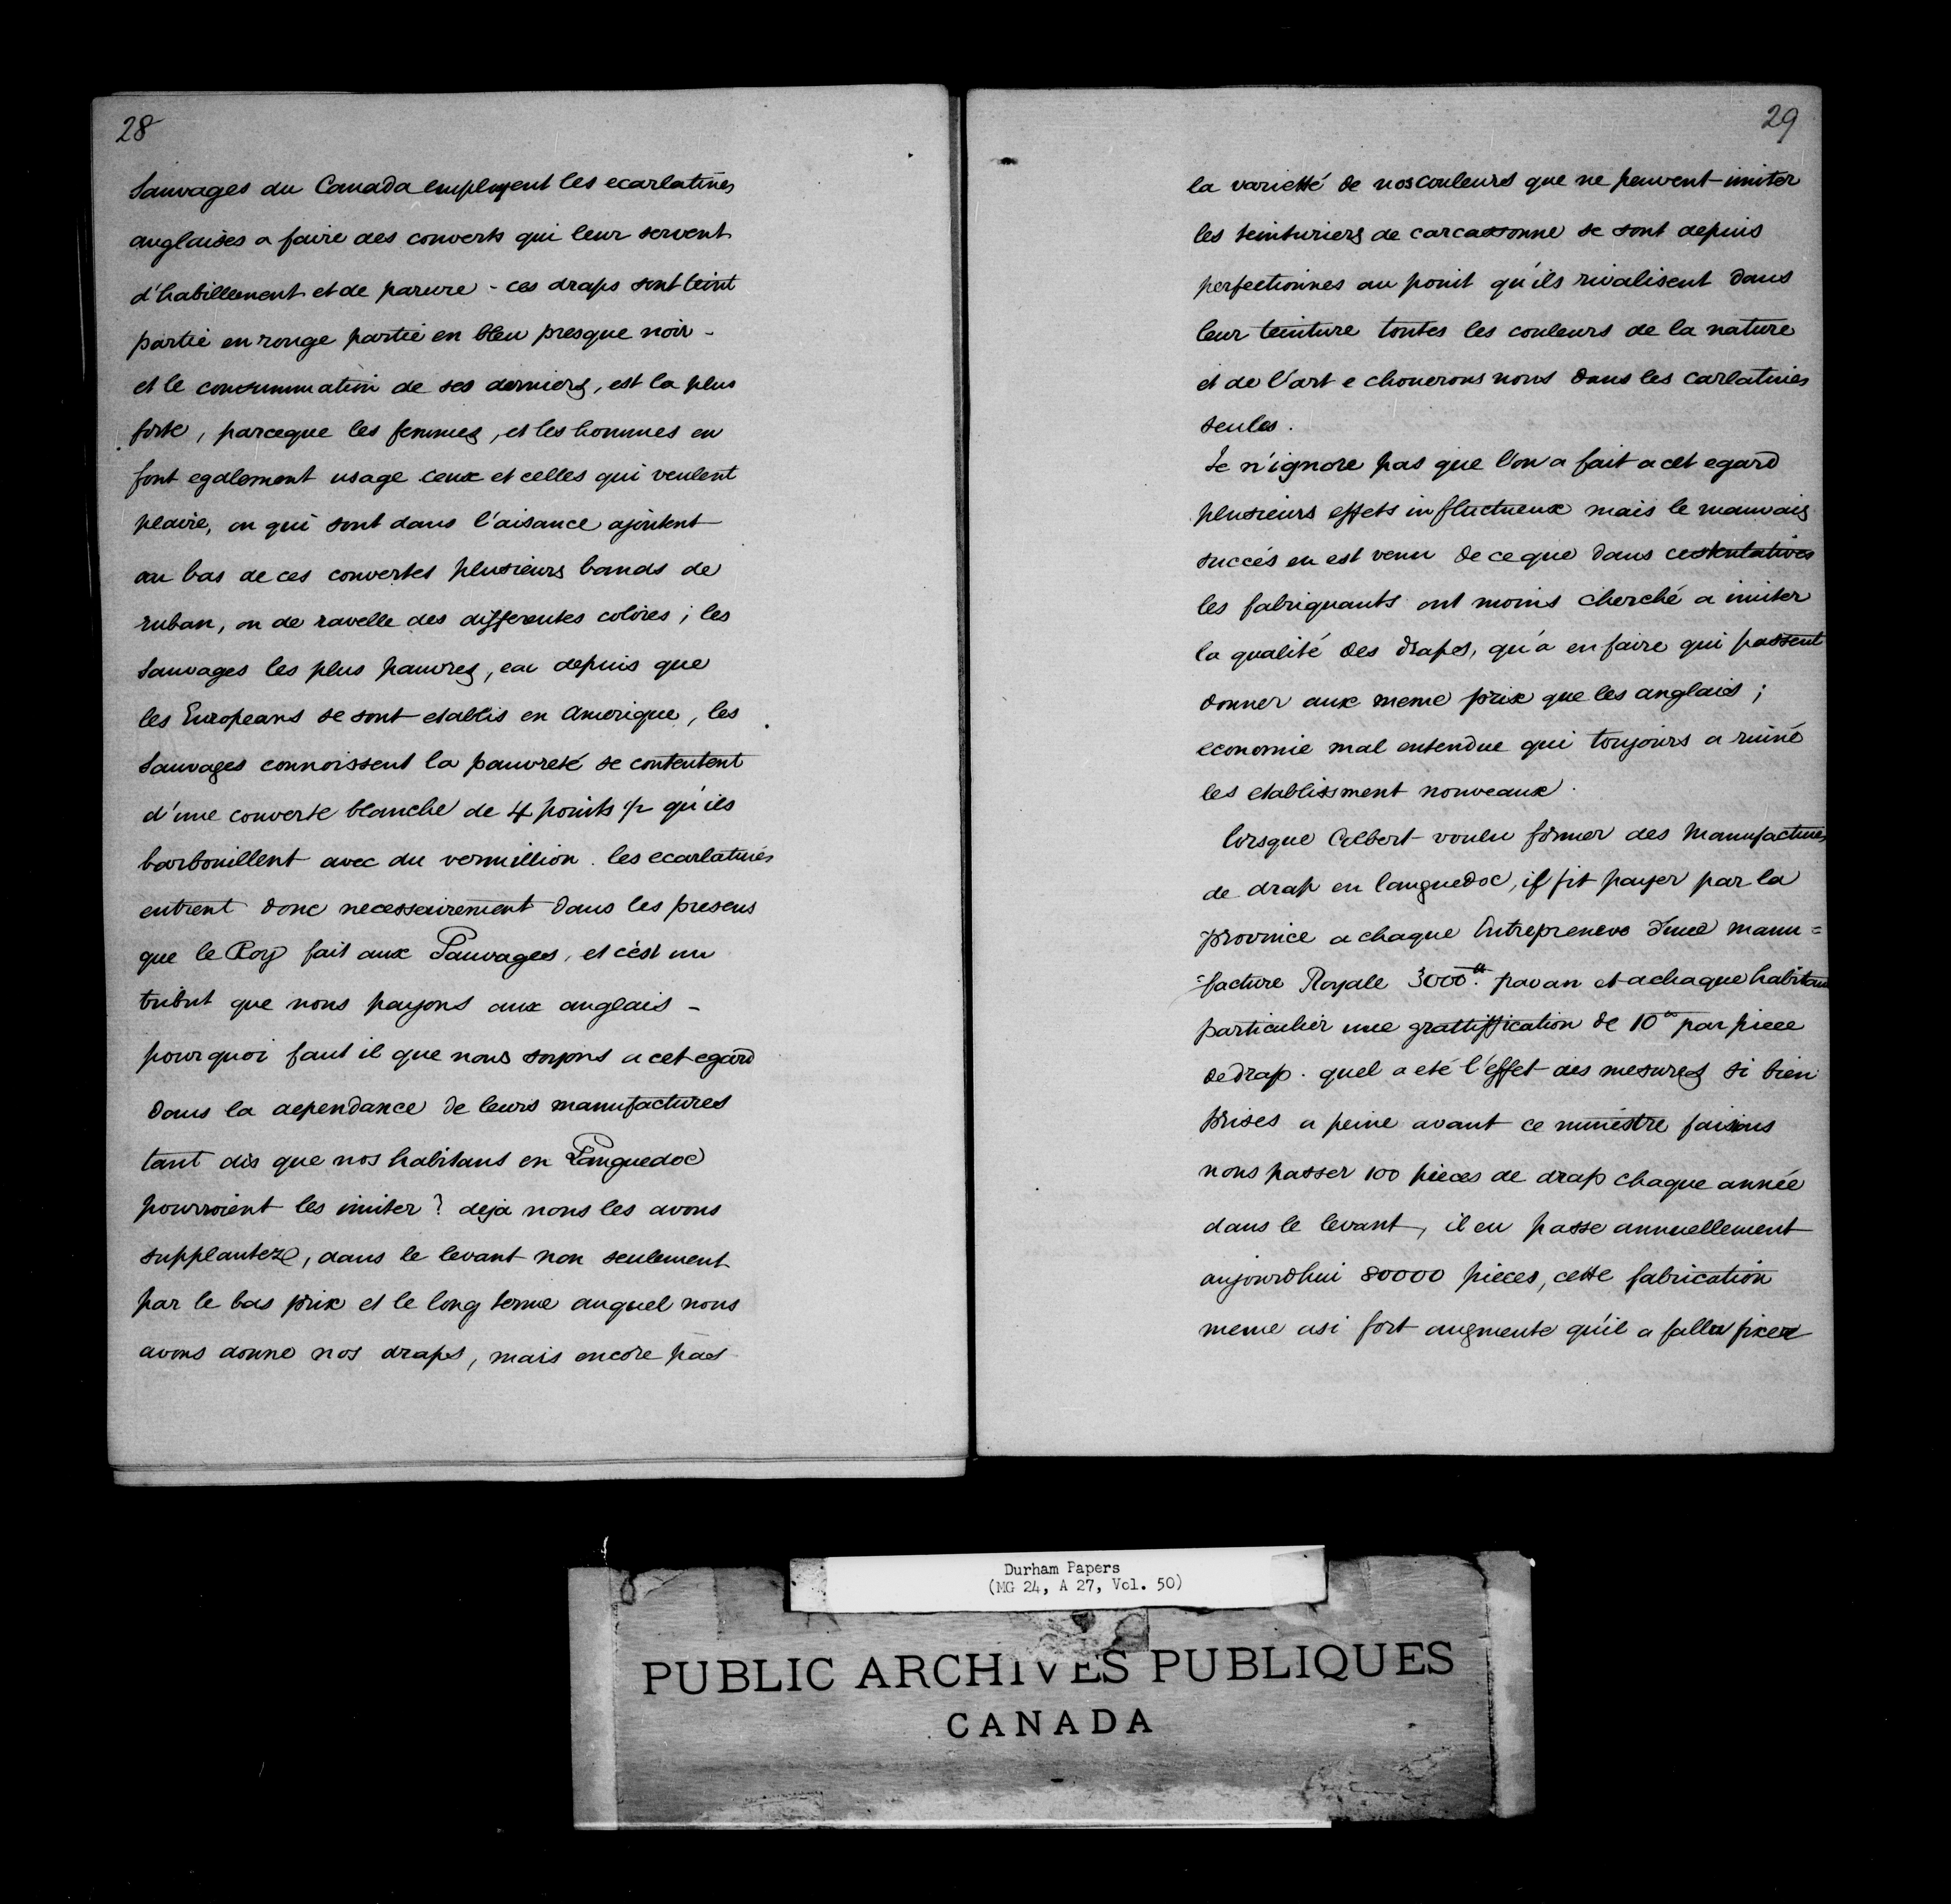 28
Sauvages du Canada employent les ecarlatines
anglaises a faire des converts qui leur servent
d'habillement et de parure - ces draps sont teint
partie en rouge partie en bleu presque noir -
et le consummation de ses derniers, est la plus
forte, parceque les femmes, et les hommes en
font egalement usage ceux et celles qui veulent
plaire, ou qui sont dans l'aisance ajoutent
au bas de ces convertes plusieurs bands de
ruban, ou de ravelle des differentes colores ; les
Sauvages les plus pauvres, car depuis que
les Europeans se sont etablis en Amerique, les
Sauvages connoissent la pauvreté se contentent
d'une converte blanche de 4 points ½ qu'ils
barbouillent avec du vermillion. les ecarlatines
entrent donc necessairement dans les presens
que le Roy fait aux Sauvages, et c'est un
tribut que nous payons aux anglais -
pourquoi faut il que nous soyons a cet egard
dans la dependance de leurs manufactures
tant dis que nos habitans en Languedoc
pourroient les imiter ? deja nous les avons
supplanteze, dans le levant non seulement
par le bas prix et le long terme auquel nous
avons donne nos draps, mais encore par
29
la varietté de nos couleurs que ne peuvent imiter
les teinturiers de carcassonne se sont depuis
perfectionnes au point qu'ils rivalisent dans
leur teinture toutes les couleurs de la nature
et de l'art e chouerons nous dans les carlatines
seules.
Je n'ignore pas que l'on a fait a cet egard
plusieurs effets influctueux mais le mauvais
succés en est venu de ce que dans ces tentatives
les fabriquants ont moins cherché a imiter
la qualité des drapes, qu'a en faire qui passent
donner aux meme prix que les anglais ;
economie mal entendue qui toujours a ruiné
les etablissment nouveaux.
lorsque Colbert voulu former des Manufactures
de drap en languedoc, il fit payer par la
province a chaque Entrepreneur d'une manu=
=facture Royale 3000tt. par an et a chaque habitant
particulier une grattiffication de 10tt par piece
de drap. quel a eté l'effet des mesures si bien
prises a peine avant ce ministre faisions
nous passer 100 pieces de drap chaque année
dans le levant, il en passe annuellement
aujourdhui 80000 pieces, cette fabrication
meme asi fort augmente qu'il a fallu fixer
Durham Papers
(MG 24, A 27, Vol. 50)
PUBLIC ARCHIVES PUBLIQUES
CANADA